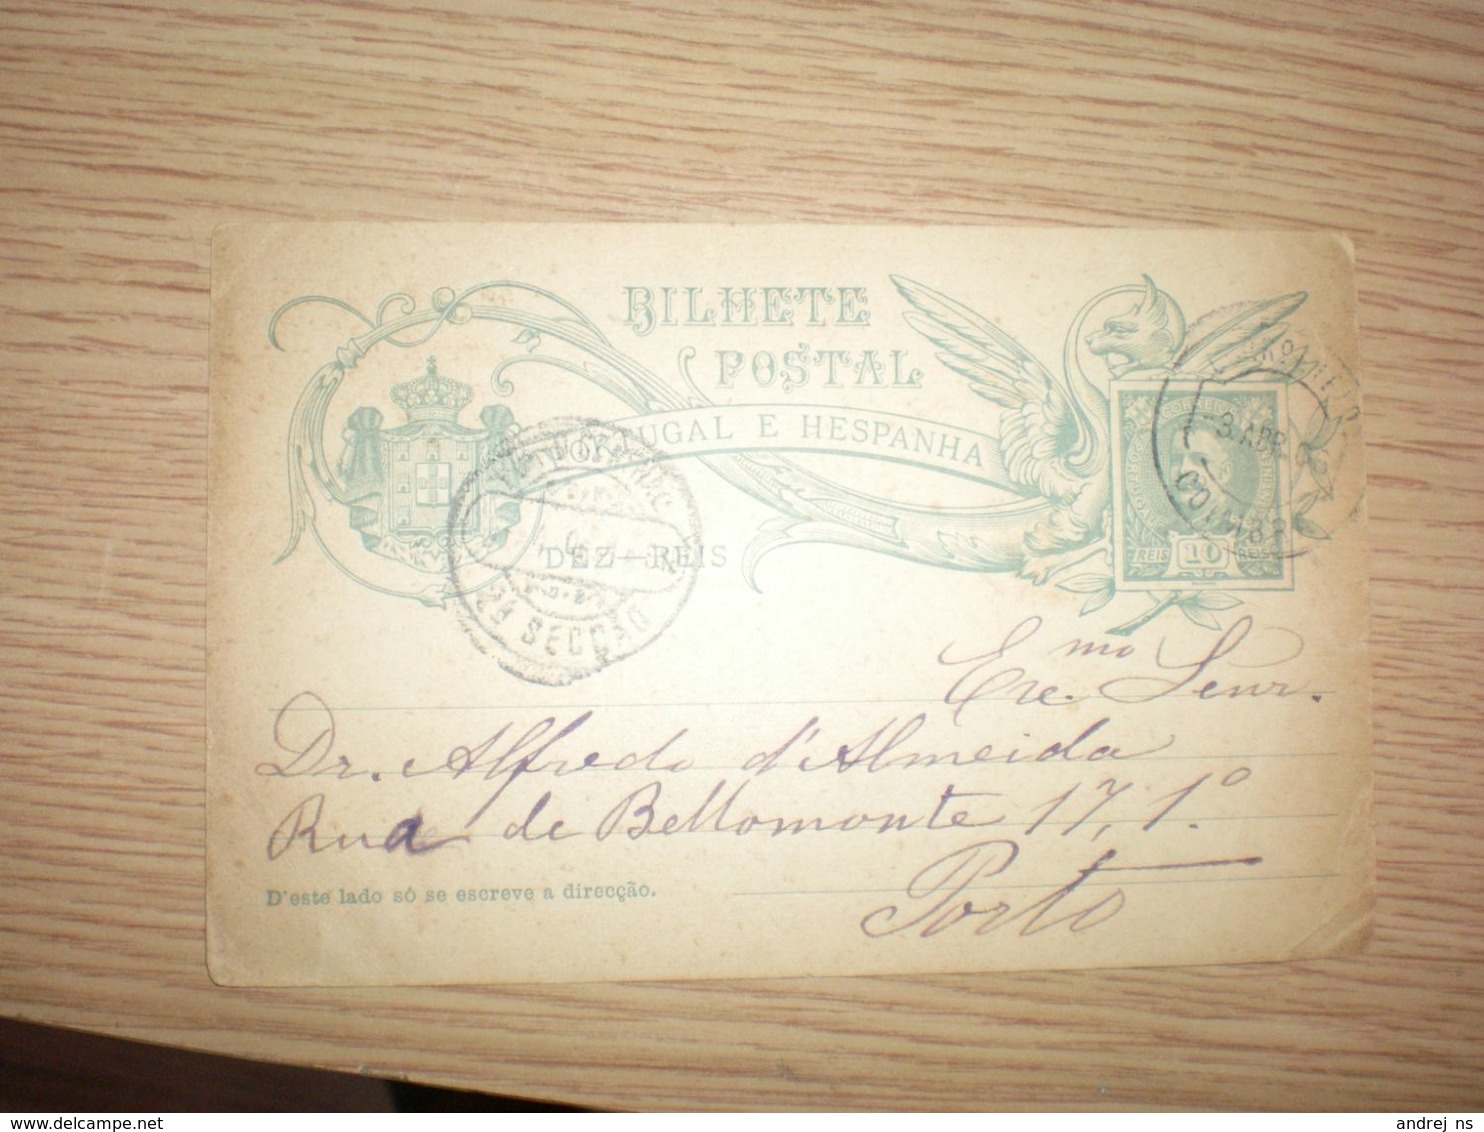 BILHETE
POSTAL
PORTUGAL E HESPANHA
DEZ—REIS
CORREIOS
REIS 10 REIS
3 ABR
COIMBRA
SECÇÃO
Exc.mo Senr.
Dr. Alfredo d'Almeida
Rua de Bellomonte 17, 1.º
Porto
D'este lado só se escreve a direcção.
andrej_ns